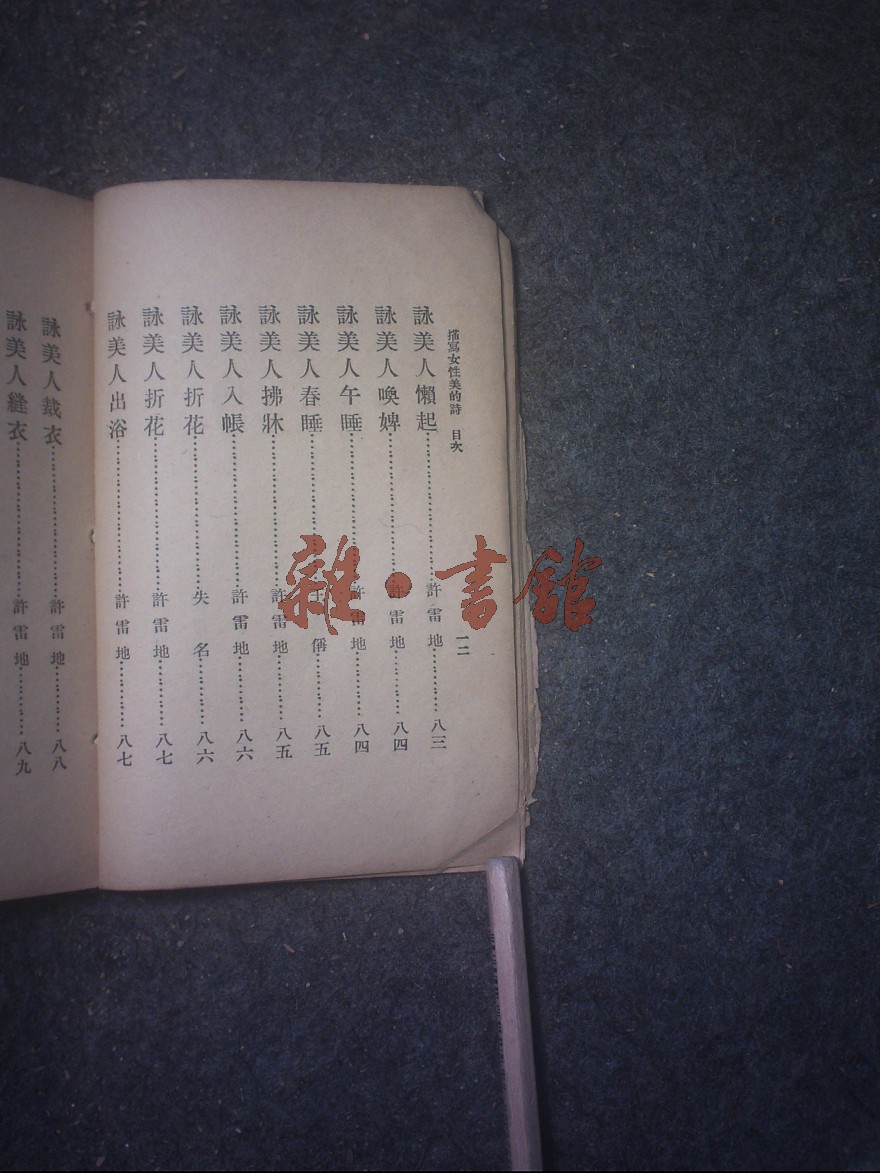 描寫女性美的詩　目次　一二
詠美人懶起…………許雷地…………八三
詠美人喚婢…………許雷地…………八四
詠美人午睡…………許雷地…………八四
詠美人春睡…………王偁…………八五
詠美人拂牀…………許雷地…………八五
詠美人入帳…………許雷地…………八六
詠美人折花…………失名…………八六
詠美人折花…………許雷地…………八七
詠美人出浴…………許雷地…………八七
詠美人裁衣…………許雷地…………八八
詠美人縫衣…………許雷地…………八九
雜·書館